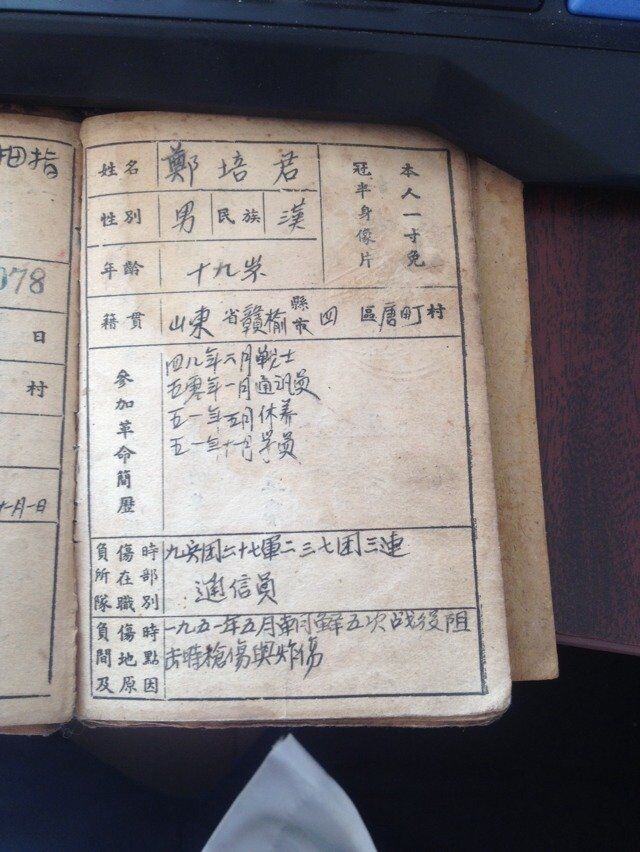 拇指
078
日
村
十月一日
姓名 鄭培君
本人一寸免冠半身像片
性別 男 民族 漢
年齡 十九岁
籍貫 山東省贛榆縣市四區唐町村
參加革命簡歷
四八年六月戰士
五零年一月通訊員
五一年五月休养
五一年十一月学員
負傷時所在部隊職別
九兵团二十七軍二三七团三連
通信員
負傷時間地點及原因
一九五一年五月朝鮮五次战役阻
击時槍傷與炸伤